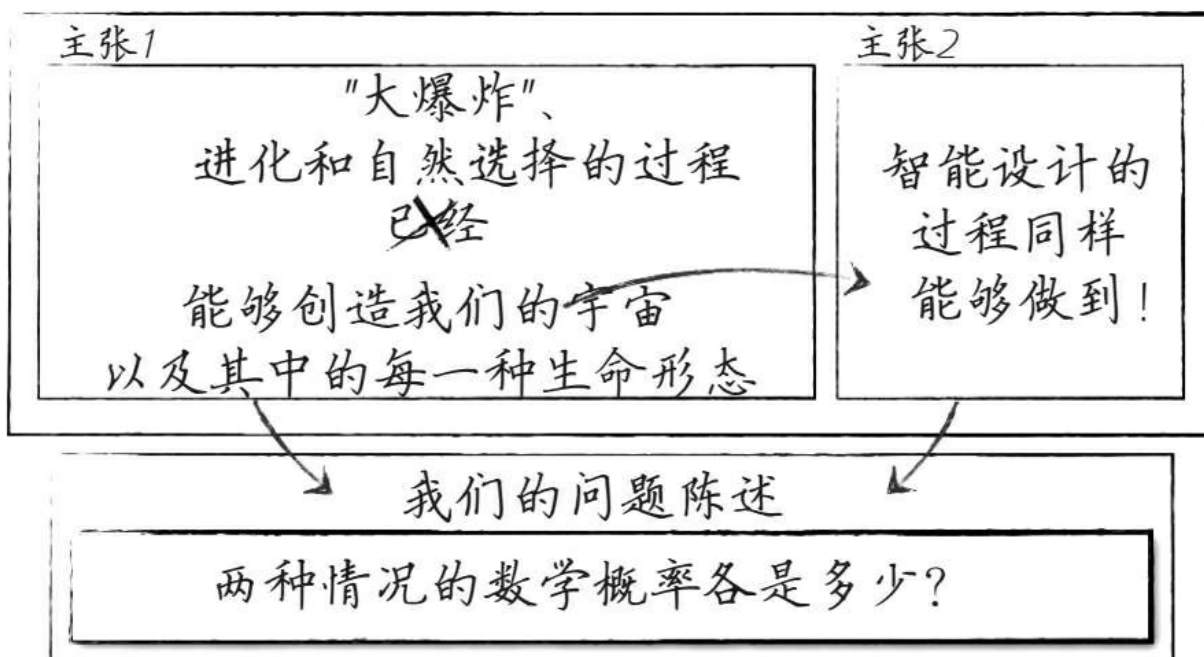 主张1
"大爆炸"、
进化和自然选择的过程
已经
能够创造我们的宇宙
以及其中的每一种生命形态
主张2
智能设计的
过程同样
能够做到!
我们的问题陈述
两种情况的数学概率各是多少?